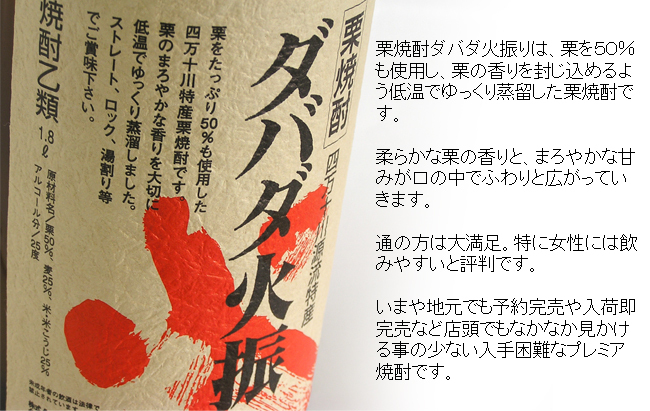 栗焼酎
ダバダ火振
四万十川源流特産
栗をたっぷり50%も使用した
四万十川特産栗焼酎です。
栗のまろやかな香りを大切に
低温でゆっくり蒸溜しました。
ストレート、ロック、湯割り等
でご賞味下さい。
焼酎乙類 1.8ℓ
原材料名／栗50%、麦25%、米・米こうじ25%
アルコール分／25度
未成年者の飲酒は法律で
禁止されています
株式
栗焼酎ダバダ火振りは、栗を50%
も使用し、栗の香りを封じ込めるよ
う低温でゆっくり蒸留した栗焼酎で
す。
柔らかな栗の香りと、まろやかな甘
みが口の中でふわりと広がってい
きます。
通の方は大満足。特に女性には飲
みやすいと評判です。
いまや地元でも予約完売や入荷即
完売など店頭でもなかなか見かけ
る事の少ない入手困難なプレミア
焼酎です。